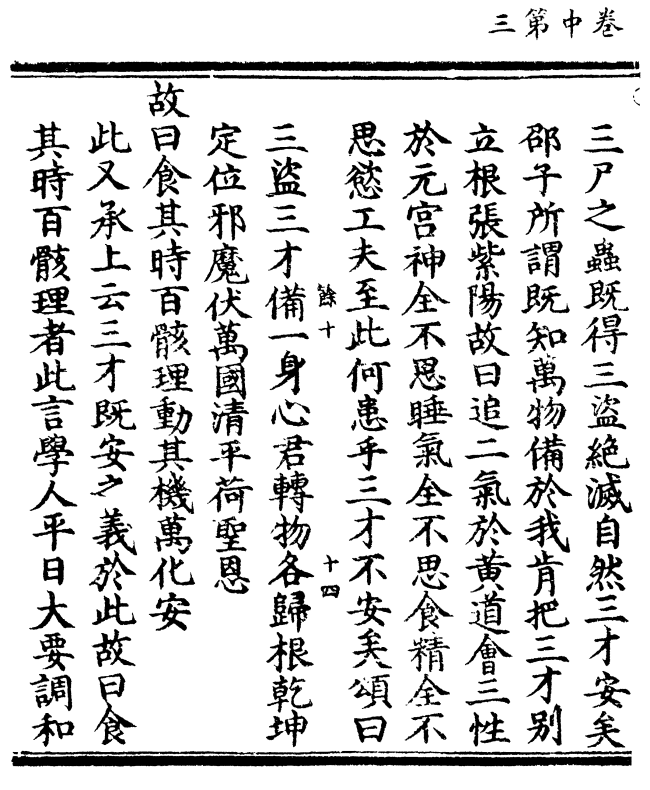 三第中卷
三尸之蟲既得三盜絕滅自然三才安矣
邵子所謂既知萬物備於我肯把三才別
立根張紫陽故曰追二氣於黃道會三性
於元宮神全不思睡氣全不思食精全不
思慾工夫至此何患乎三才不安矣頌曰
餘十
十四
三盜三才備一身心君轉物各歸根乾坤
定位邪魔伏萬國清平荷聖恩
故曰食其時百骸理動其機萬化安
此又承上云三才既安之義於此故曰食
其時百骸理者此言學人平日大要調和